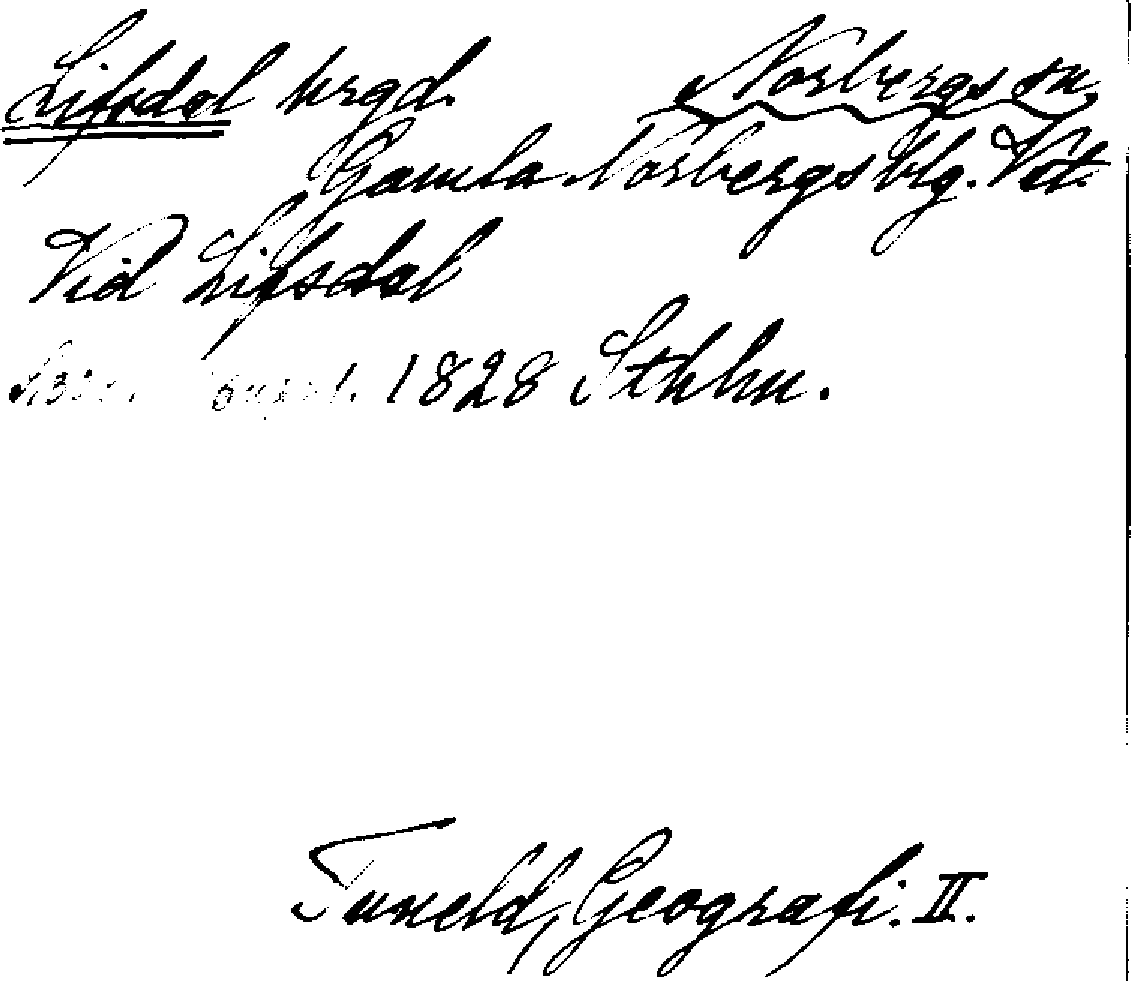 Lifsdal hrgd. Norbergs sn
Gamla Norbergs blg. Vstm.
Vid Lifsdal
1828 Sthlm.
Tuneld, Geografi. II.